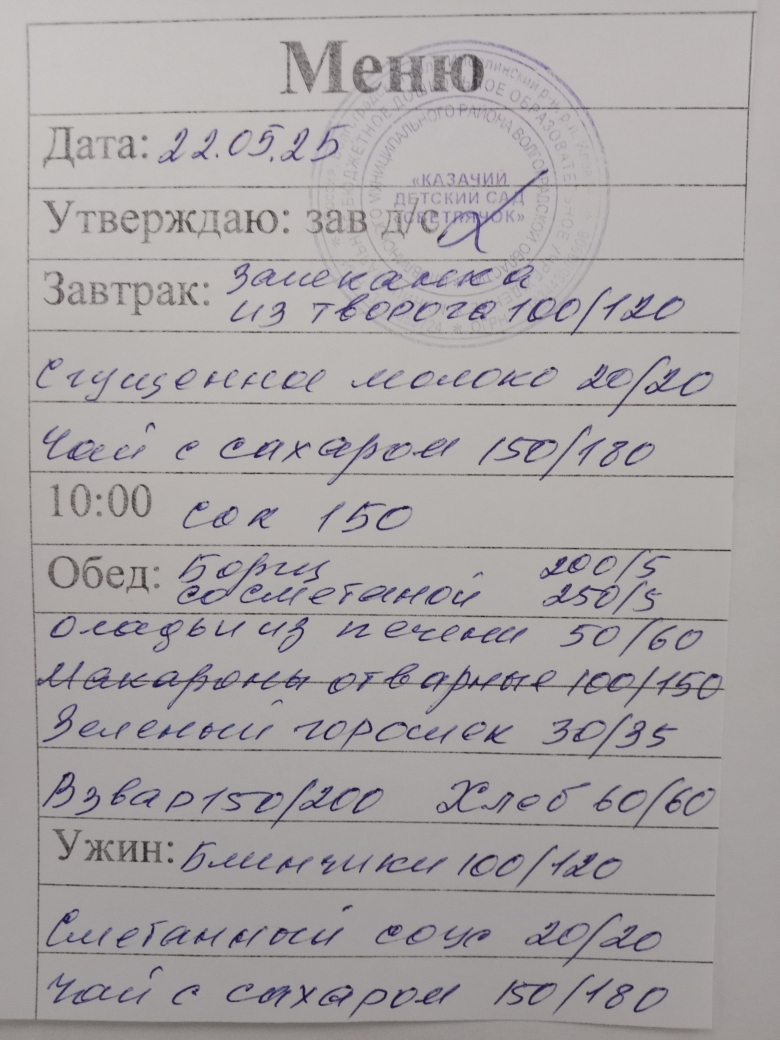 Меню
Дата: 22.05.25
«КАЗАЧИЙ
ДЕТСКИЙ САД
«СВЕТЛЯЧОК»
Утверждаю: зав д/с
Завтрак: Запеканка
из творога 100/120
Сгущенное молоко 20/20
Чай с сахаром 150/180
10:00 сок 150
Обед: Борщ 200/5
со сметаной 250/5
Оладьи из печени 50/60
Макароны отварные 100/150
Зеленый горошек 30/35
Взвар 150/200 Хлеб 60/60
Ужин: Блинчики 100/120
Сметанный соус 20/20
Чай с сахаром 150/180